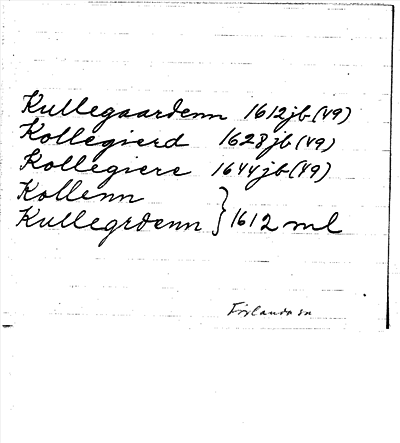 Kullegaardenn 1612 jb (49)
Kollegierd 1628 jb (49)
Kollegiere 1644 jb (49)
Kollenn
Kullegrdenn } 1612 ml
Förlanda sn